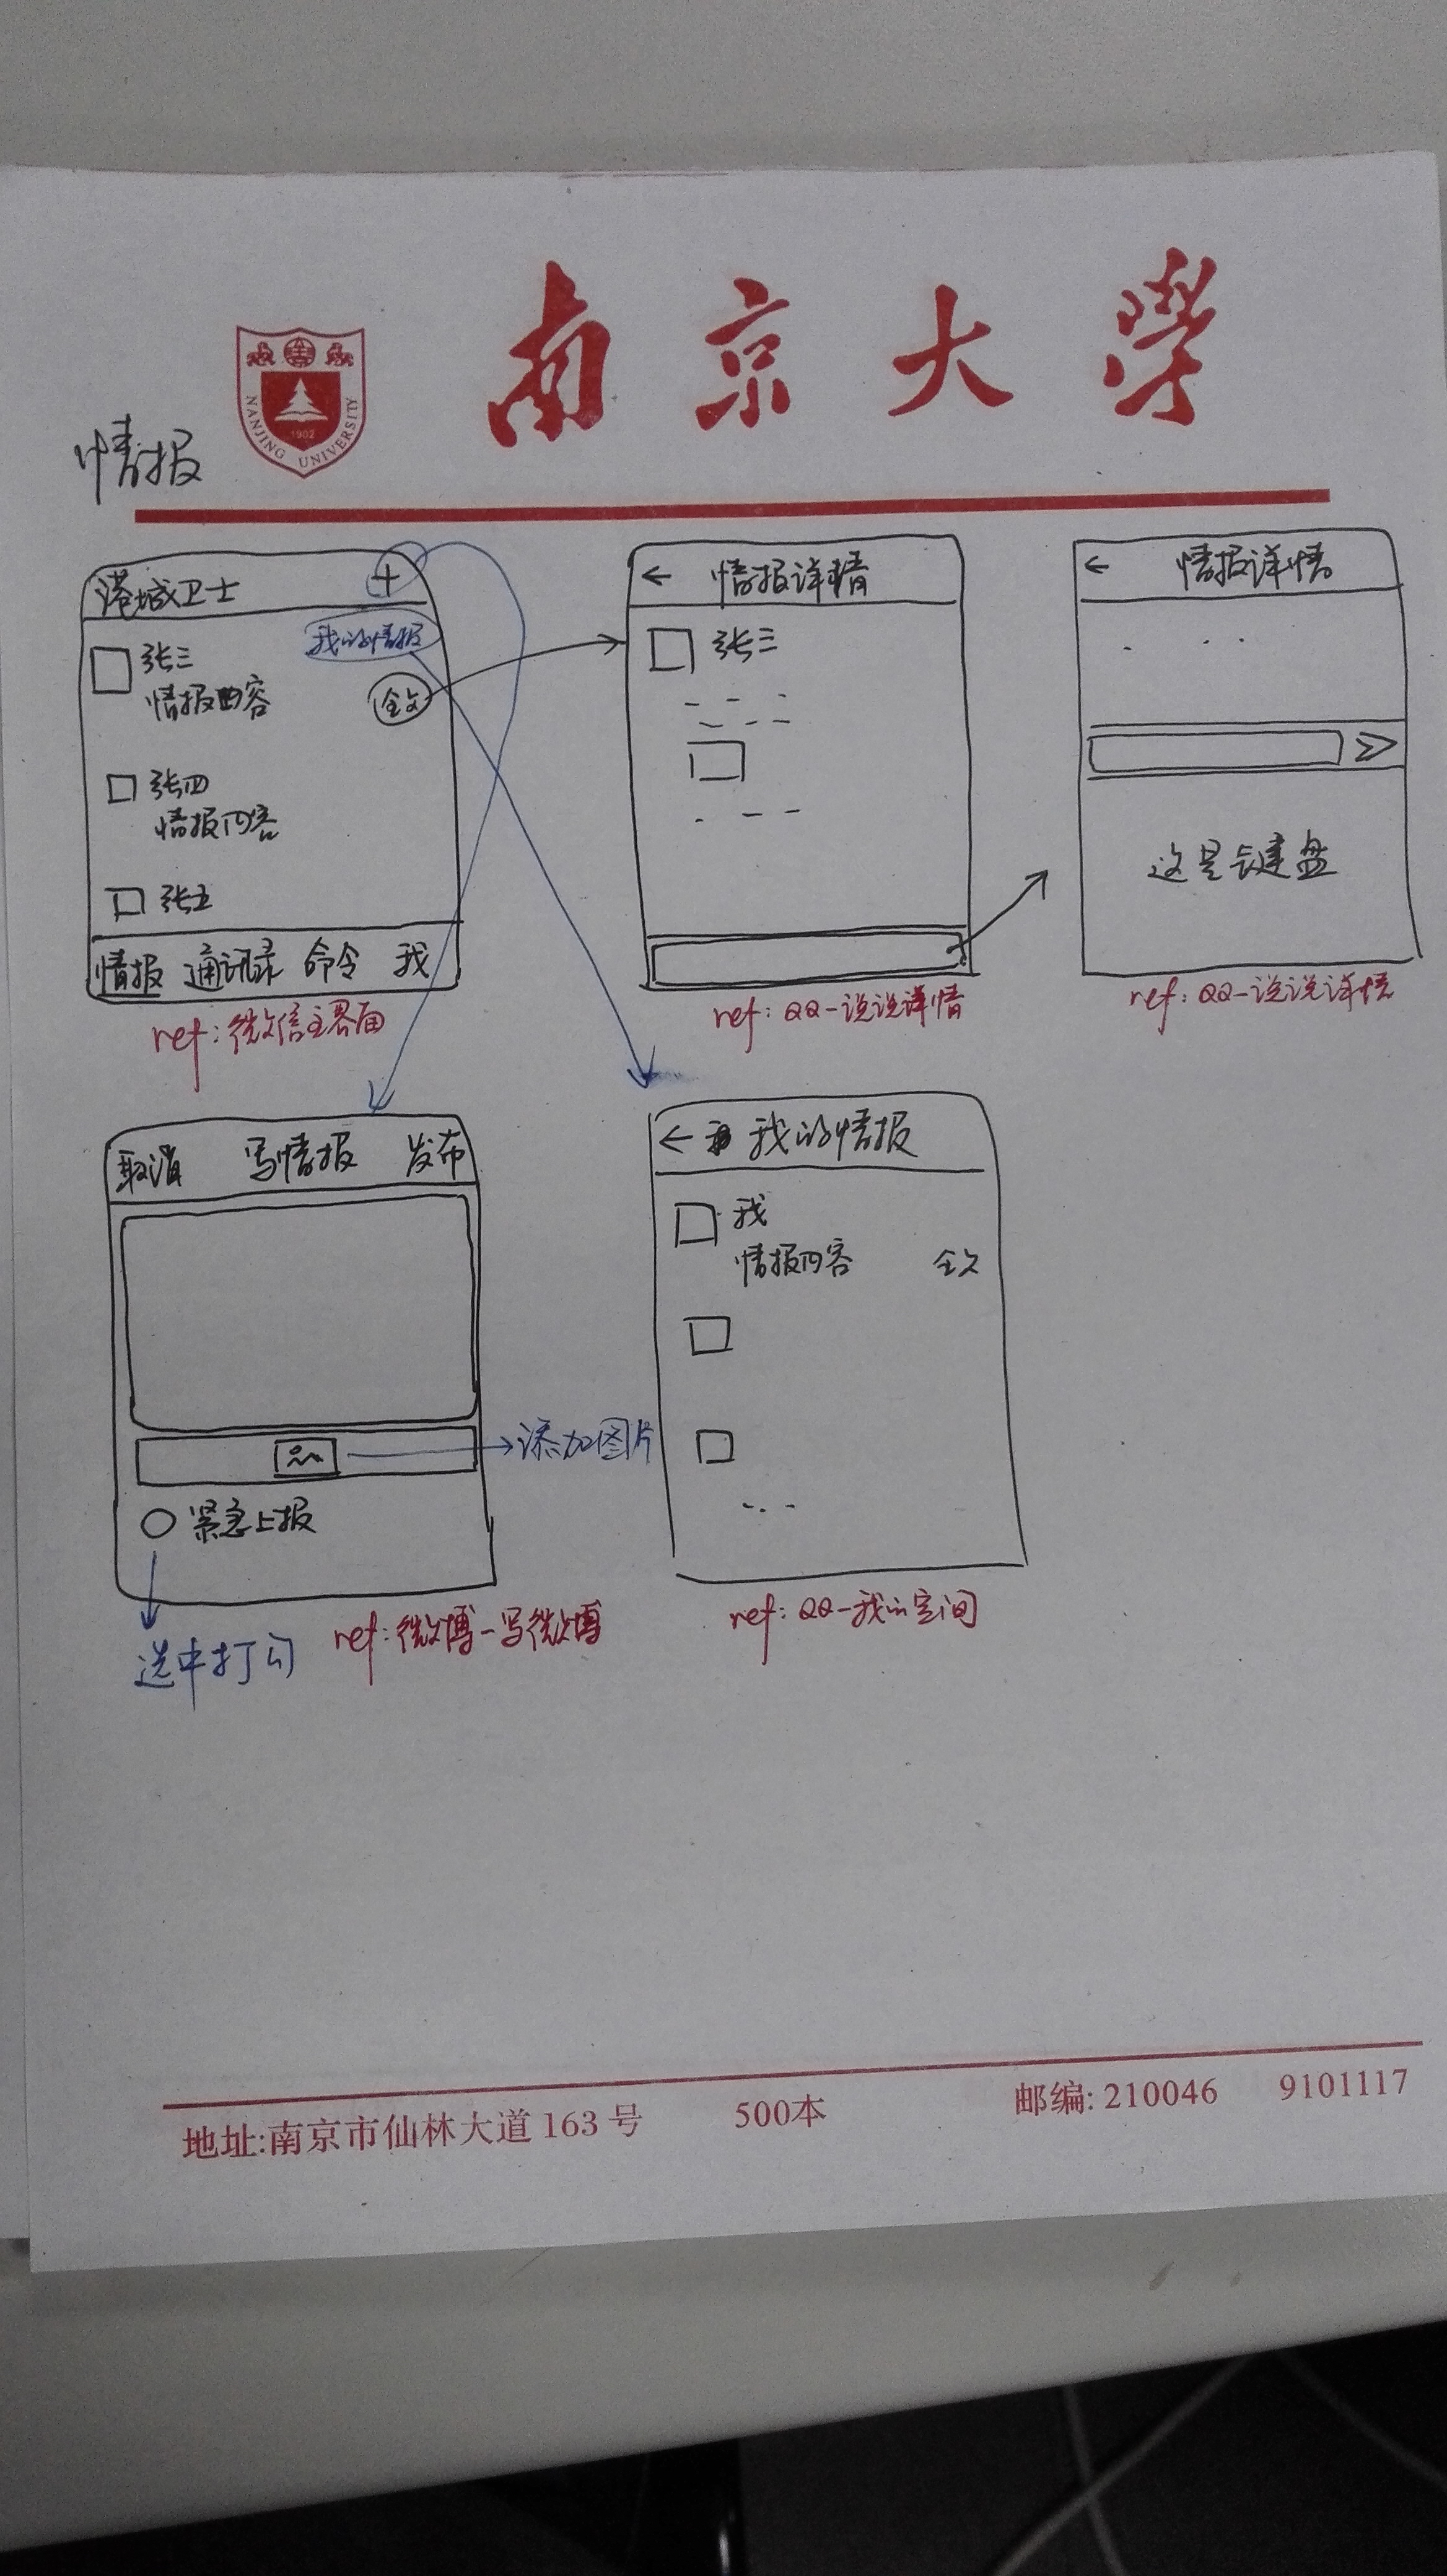 南京大學
NANJING UNIVERSITY
1902
情报
港城卫士 +
我的情报
张三
情报内容 全文
张四
情报内容
张五
情报 通讯录 命令 我
ref:微信主界面
← 情报详情
张三
ref:QQ-说说详情
← 情报详情
这是键盘
ref:QQ-说说详情
取消 写情报 发布
添加图片
紧急上报
选中打勾
ref:微博-写微博
← 我的情报
我
情报内容 全文
ref:QQ-我的空间
地址:南京市仙林大道163号 500本 邮编:210046 9101117